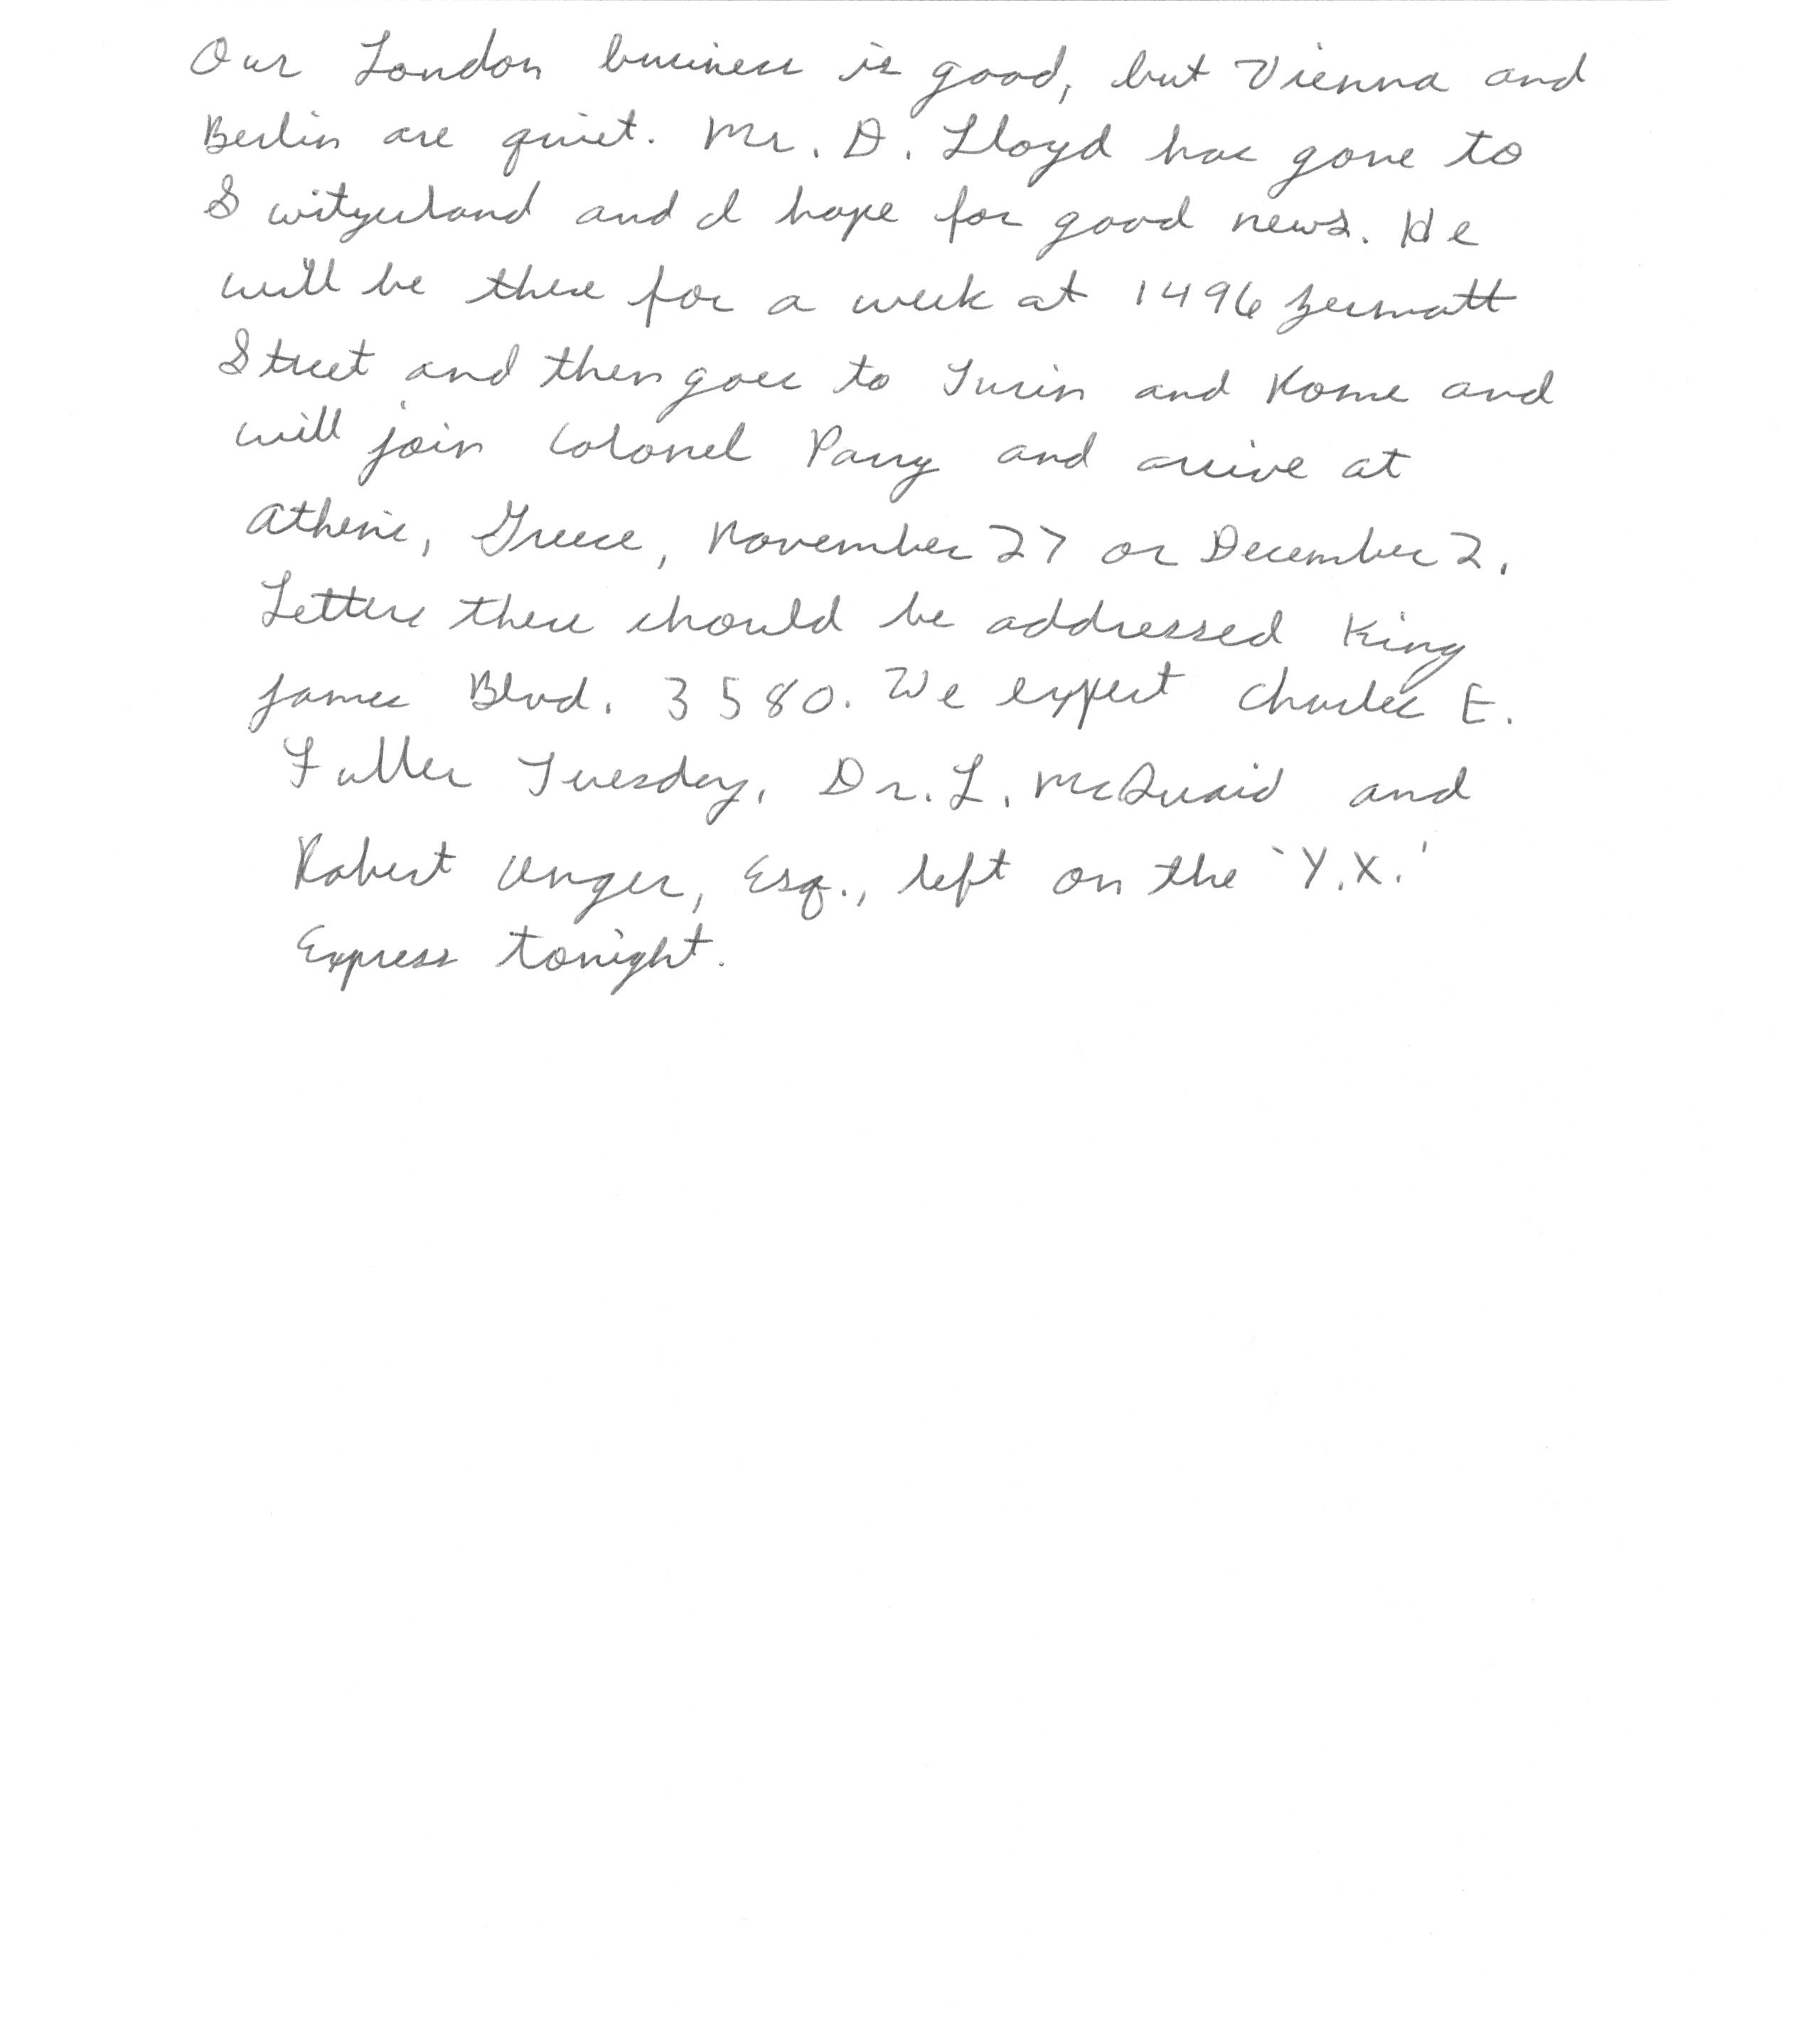 Our London business is good, but Vienna and
Berlin are quiet. Mr. D. Lloyd has gone to
Switzerland and I hope for good news. He
will be there for a week at 1496 Zermatt
Street and then goes to Turin and Rome and
will join Colonel Parry and arrive at
Athens, Greece, November 27 or December 2.
Letters there should be addressed King
James Blvd. 3580. We expect Charles E.
Fuller Tuesday. Dr. L. McQuaid and
Robert Unger, Esq., left on the 'Y.X.'
Express tonight.